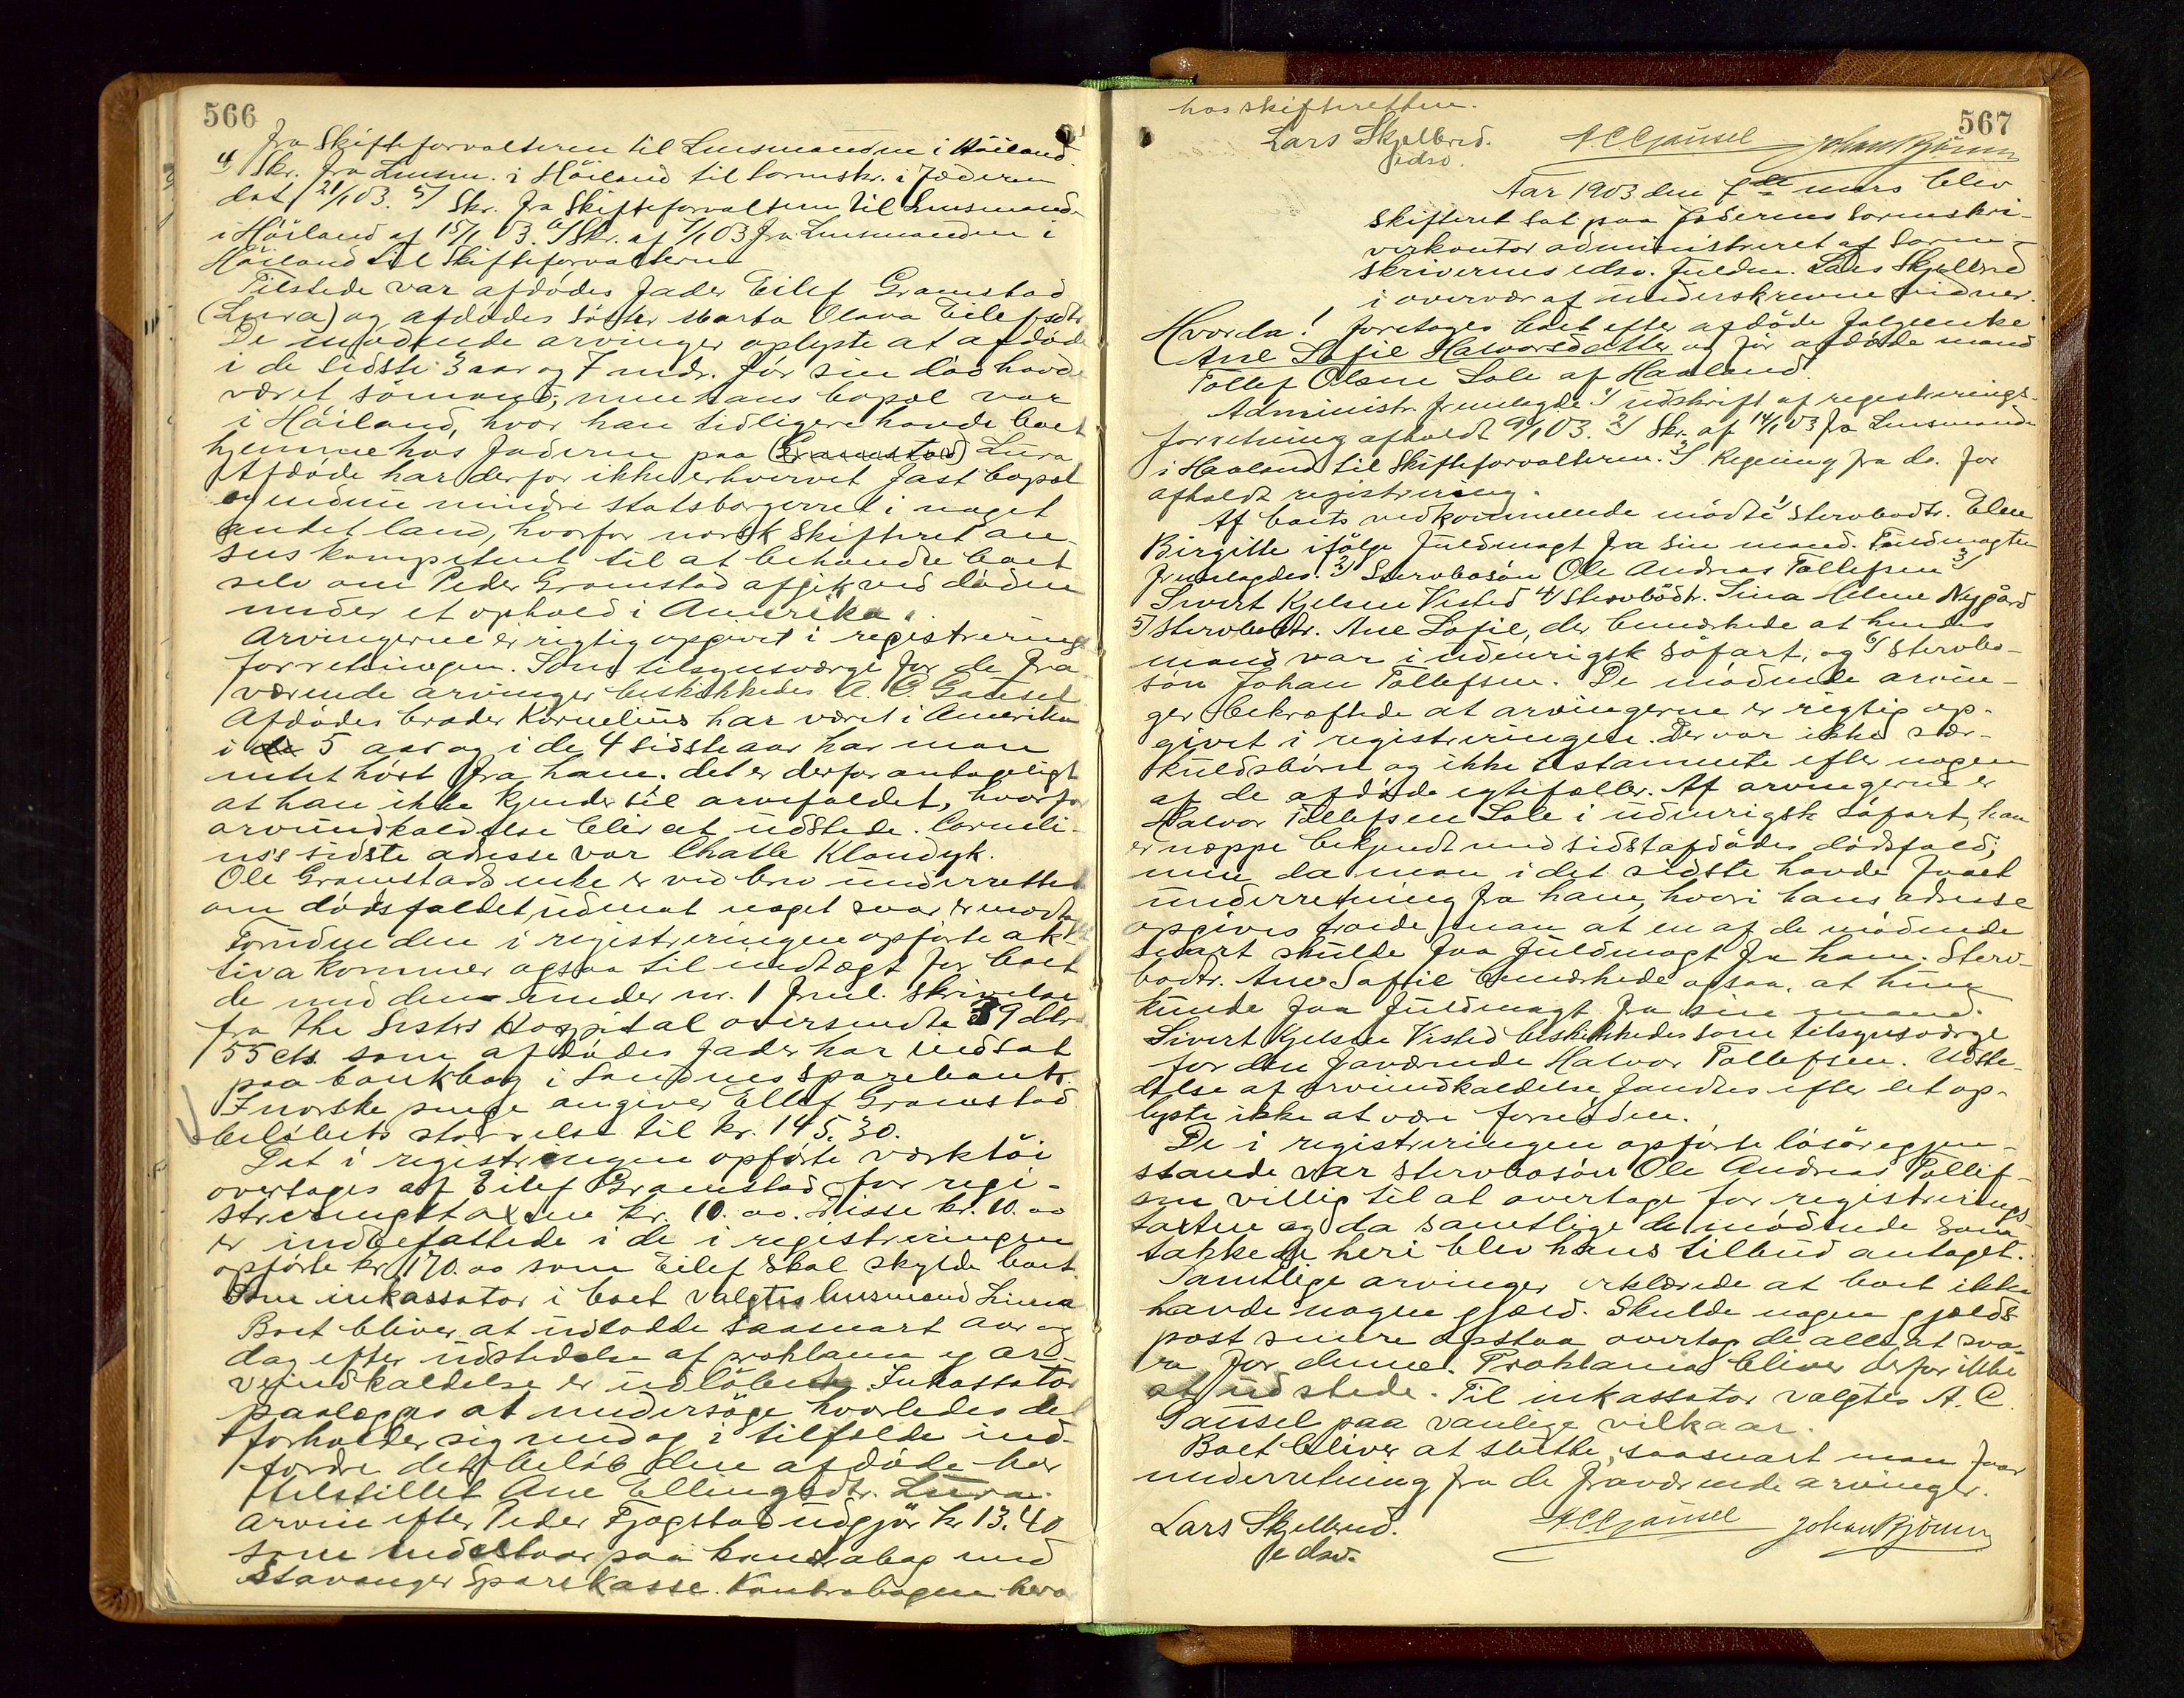 566
fra Skifteforvalteren til Lensmanden i Høiland
4/ Skr. fra Lensm. i Höiland til Sorenskr. i Jæderen
dat. 21/1 03. 5/ Skr. fra Skifteforvalteren til Lensmand-
i Höiland af 15/1 03. 6/ Skr. af 7/1 03 fra Lensmanden i
Höiland til Skifteforvalteren
Tilstede var afdødes fader Eilef Gramstad
(Lura) og afdødes søster Marta Olava Eilefsdtr
De mødende arvinger oplyste at afdøde
i de sidste 3 aar og 7 mdr. før sin død havde
været sömand; men hans bopæl var
i Höiland, hvor han tidligere havde boet
hjemme hos faderen paa (Gramstad) Lura
Afdøde har derfor ikke erhvervet fast bopæl
og endnu mindre statsborgerret i noget
andet land, hvorfor norsk skifteret an-
sees kompetent til at behandle boet
selv om Peder Gramstad afgik ved døden
under et ophold i Amerika.
Arvingerne er rigtig opgivet i registrerings
forretningen. Som tilsynsværge for de fra-
værende arvinger beskikkedes A. C. Gausel
Afdødes broder Kornelius har været i Amerika
i de 5 aar og i de 4 sidste aar har man
intet hört fra ham. Det er derfor antageligt
at han ikke kjender til arvefaldet, hvorfor
arveindkaldelse blir at udstede. Corneli-
us's sidste adresse var Chatle Klondyk.
Ole Gramstads enke er ved brev underrettet
om dödsfaldet, uden at noget svar er modta
Foruden den i registreringen opførte ak-
tiva kommer ogsaa til indtægt for boet
de med den under nr. 1 freml. skrivelse
fra The Sisters Hospital oversendte 39 dlr
55 cts. som afdødes fader har indsat
paa bankbog i Sandnes Sparebank.
I norske penge angiver Eilef Gramstad
beløbets størrelse til kr. 145.30.
Det i registreringen opførte værktöi
overtages af Eilef Gramstad for regi-
streringstaxten kr. 10.00. Disse kr. 10.00
er indbefattede i de i registreringen
opførte kr 170.00 som Eilef skal skylde boet.
Som inkassator i boet valgtes lensmand Lima
Boet bliver at udlodde saasnart aar og
dag efter udstedelse af proklama og ar-
veindkaldelse er udløbet. Inkassator
paalægges at undersöge hvorledes det
forholder sig med og i tilfælde ind-
fordre det beløb den afdøde har
tilstillet Ane Ellingsdtr. Lura.
Arven efter Peder Fjogstad udgjör kr 13.40
som indestaar paa kontrabog med
Stavanger Sparekasse. Kontrabogen bero
567
hos skifteretten.
Lars Skjelbred.
edsv.
A C Gausel Johan Bjönnes
Aar 1903 den 7de mars blev
skifteret sat paa Jæderens Sorenskri-
verkontor administreret af Soren-
skriverens edsv. fuldm. Lars Skjelbred
i overvær af underskrevne vidner.
Hvorda! foretages boet efter afdøde folgeenke
Ane Sofie Halvorsdatter og før afdøde mand
Tollef Olsen Sole af Haaland.
Administr. fremlagde 1/ udskrift af registrerings-
forretning afholdt 9/1 03. 2/ Skr. af 14/1 03 fra Lensmanden
i Haaland til Skifteforvalteren. 3/ Regning fra do. for
afholdt registrering.
Af boets vedkommende mødte 1/ Stervbodtr. Elen
Birgitte ifölge fuldmagt fra sin mand. Fuldmagten
fremlagdes. 2/ Stervbosön Ole Andreas Tollefsen 3/
Sivert Kjelsen Visted 4/ Stervbødtr. Sina Helene Nygård
5/ Stervbodtr. Ane Sofie, der bemærkede at hendes
mand var i udenrigsk söfart, og 6/ stervbo-
sön Johan Tollefsen. De mødende arvin-
ger bekræftede at arvingerne er rigtig op-
givet i registreringen. Der var ikke sær-
kuldsbörn og ikke testamente efter nogen
af de afdøde egtefæller. Af arvingerne er
Halvor Tollefsen Sole i udenrigsk söfart, han
er neppe bekjendt med sidstafdödes dödsfald;
men da man i det sidste havde faaet
underretning fra ham, hvori hans adresse
opgives troede man at en af de mødende
snart skulde faa fuldmagt fra ham. Sterv-
bodtr. Ane Sofie bemærkede ogsaa, at hun
kunde faa fuldmagt fra sin mand.
Sivert Kjelsen Visted beskikkedes som tilsynsværge
for den fraværende Halvor Tollefsen. Udste-
delse af arveindkaldelse fandtes efter det op-
lyste ikke at være fornøden.
De i registreringen opførte løsöregjen-
stande var stervbosön Ole Andreas Tollef-
sen villig til at overtage for registrerings-
taxten og da samtlige de mødende sam-
tykkede heri blev hans tilbud antaget.
Samtlige arvinger erklærede at boet ikke
havde nogen gjæld. Skulde nogen gjælds-
post senere opstaa overtog de alle at sva-
re for denne. Proklama bliver derfor ikke
at udstede. Til inkassator valgtes A. C.
Gausel paa vanlige vilkaar.
Boet bliver at slutte, saasnart man faar
underretning fra de fraværende arvinger.
Lars Skjelbred.
edsv.
A C Gausel Johan Bjönnes